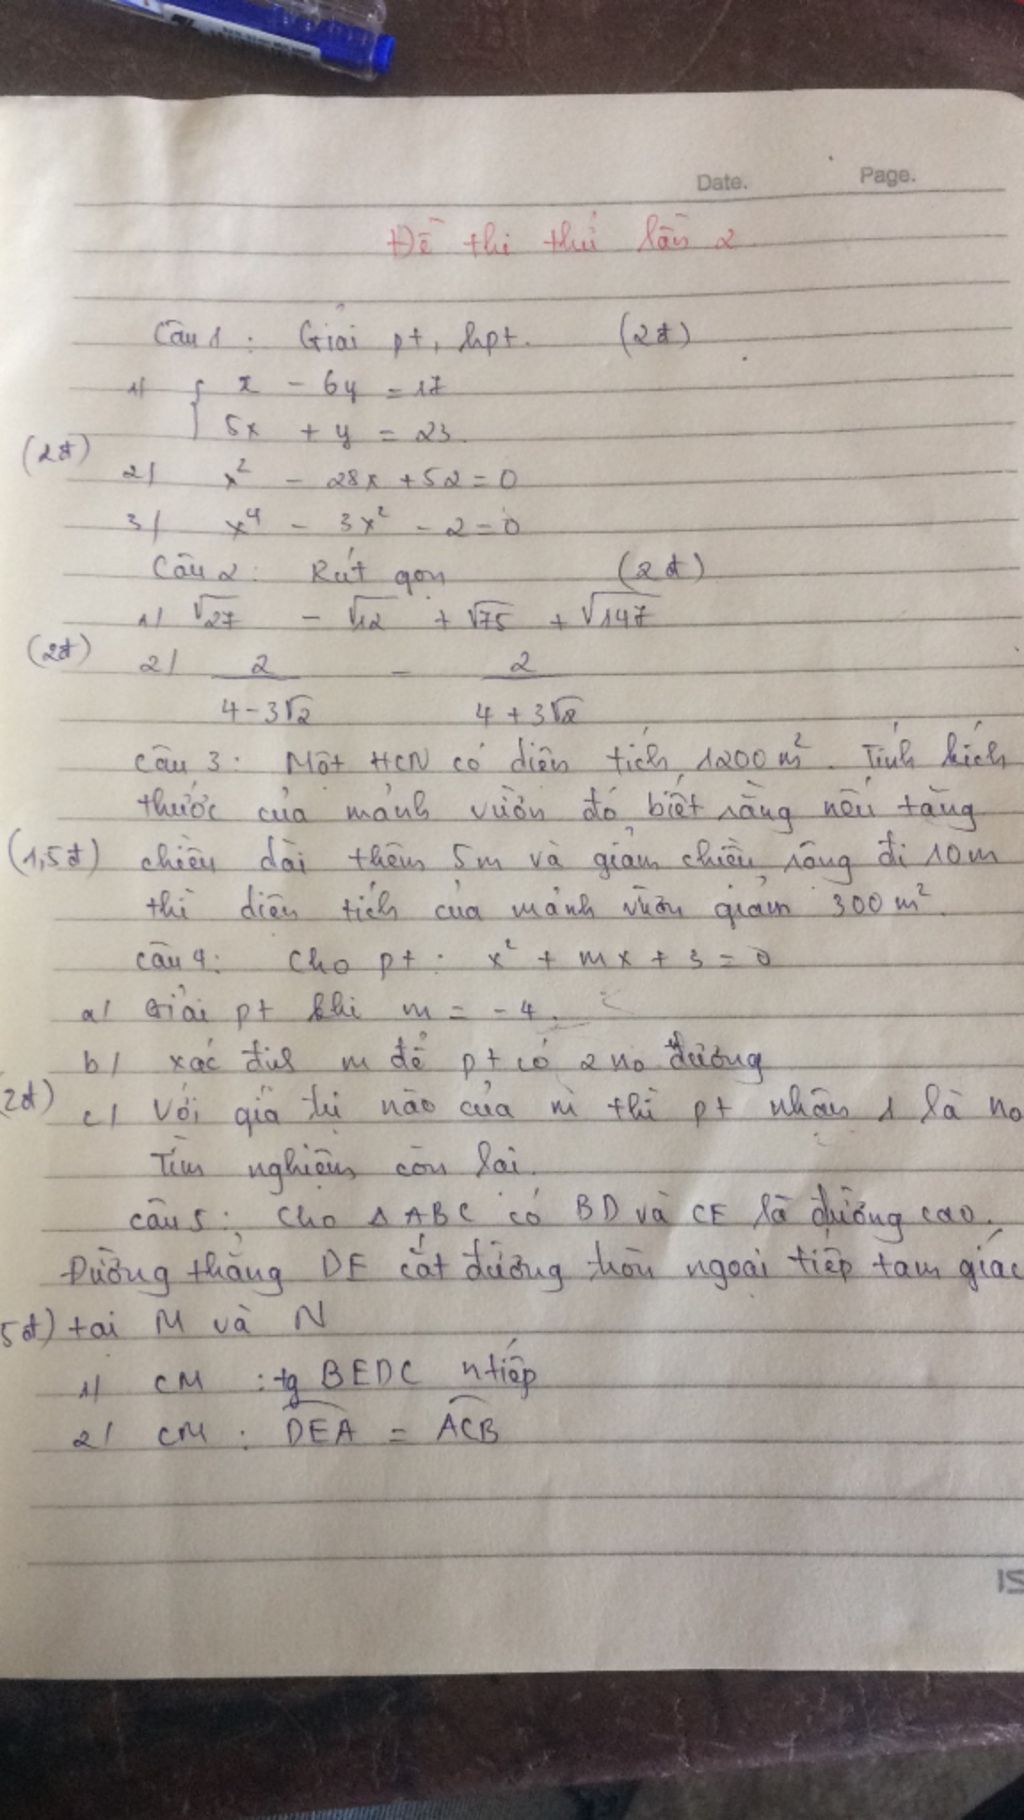 Date. Page.
Đề thi thử lần 2
Câu 1 : Giải pt, hpt. (2đ)
1/ { x - 6y = 17
5x + y = 23
(2đ)
2/ x² - 28x + 52 = 0
3/ x⁴ - 3x² - 2 = 0
Câu 2 : Rút gọn (2đ)
1/ √27 - √12 + √75 + √147
(2đ) 2/ 2/(4-3√2) - 2/(4+3√2)
Câu 3 : Một HCN có diện tích 1200 m². Tính kích
thước của mảnh vườn đó biết rằng nếu tăng
(1,5đ) chiều dài thêm 5m và giảm chiều rộng đi 10m
thì diện tích của mảnh vườn giảm 300 m².
Câu 4 : Cho pt : x² + mx + 3 = 0
a/ Giải pt khi m = -4.
b/ xác định m để pt có 2 no dương
2đ) c/ Với giá trị nào của m thì pt nhận 1 là no
Tìm nghiệm còn lại.
Câu 5 : Cho Δ ABC có BD và CE là đường cao.
Đường thẳng DE cắt đường tròn ngoại tiếp tam giác
5đ) tại M và N
1/ CM : tg BEDC ntiếp
2/ CM : DEA = ACB